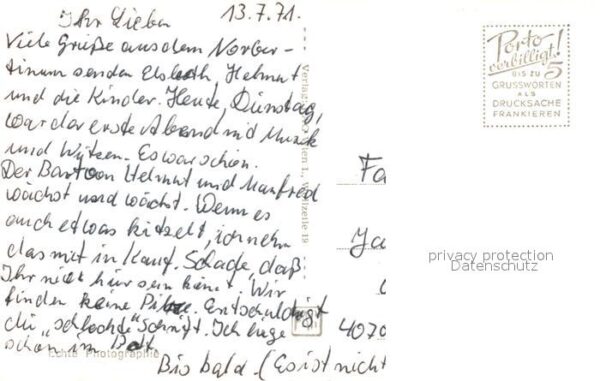 Ihr Lieben 13.7.71.
Viele Grüße aus dem Norber-
tinum senden Elsbeth, Helmut
und die Kinder. Heute, Dienstag,
war der erste Abend mit Musik
und Witzen. Es war schön.
Der Bart von Helmut und Manfred
wächst und wächst. Wenn es
auch etwas kitzelt, ich nehm
das mit in Kauf. Schade, daß
Ihr nicht hier sein könnt. Wir
finden keine Pilze. Entschuldigt
die "schlechte" Schrift. Ich liege
schon im Bett.
Bis bald. (Es ist nicht
Porto
verbilligt!
BIS ZU 5
GRUSSWORTEN
ALS
DRUCKSACHE
FRANKIEREN
Fa
Ja
4070
Echte Photographie
privacy protection
Datenschutz